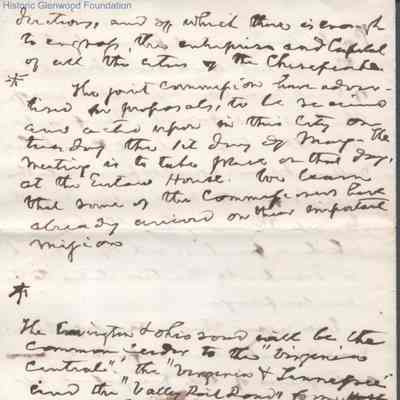 Historic Glenwood Foundation
directions, and of which there is enough
to engross, the enterprise and Capital
of all the cities of the Chesapeake
* The joint commission have adver-
tised for proposals, to be received
and acted upon in this City on
tuesday the 1st day of May - the
meeting is to take place on that day,
at the Eutaw House. We learn
that some of the Commissioners have
already arrived on their important
mission
*
The Covington & Ohio road will be the
common feeder to the "Virginia
Central" the "Virginia & Tennessee"
and the "Valley Rail Road"